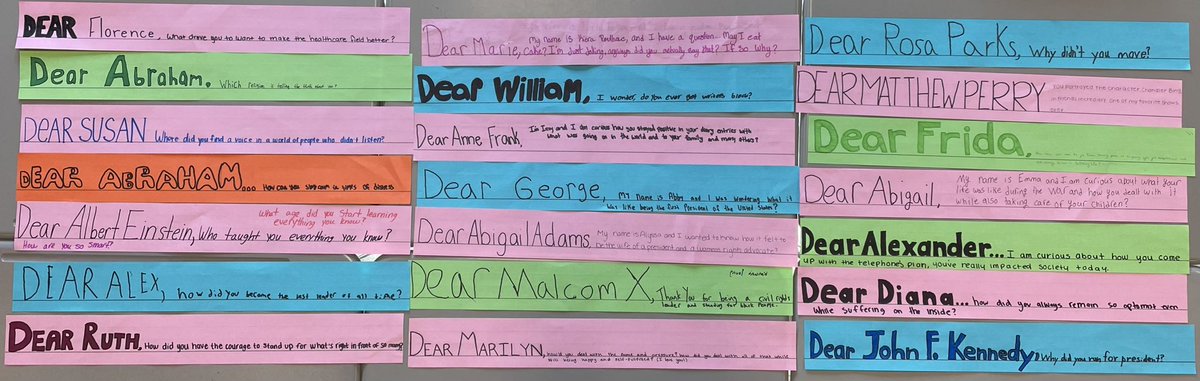 DEAR Florence, What drove you to want to make the healthcare field better?
Dear Abraham, Which religion is telling the truth about you?
DEAR SUSAN Where did you find a voice in a world of people who didn't listen?
DEAR ABRAHAM... How can you stay calm in times of
Dear Albert Einstein, Who taught you everything you know?
What age did you start learning
everything you know?
How are you so smart?
DEAR ALEX, how did you become the best leader of all time?
DEAR RUTH, How did you have the courage to stand up for what's right in front of so many?
Dear Marie, My name is Kiera and I have a question... May I eat
cake? I'm Just joking, anyways did you actually say that? If so Why?
Dear William, I wonder, do you ever get writers block?
Dear Anne Frank, I'm Izzy and I am curious how you stayed positive in your diary entries with
what was going on in the world and to your family and many others?
Dear George, My Name is Abby and I was wondering what it
was like being the first President of the United States?
Dear Abigail Adams, My name is Alyssa and I wanted to know how it felt to
be the wife of a president and a women rights advocate?
Dear Malcom X, Thank You for being a civil rights
leader and standing for black people.
DEAR MARILYN, how'd you deal with the fame and pressure? how did you deal with all of that while
still being happy and self-fulfilled? (I love you!)
Dear Rosa Parks, Why didn't you move?
DEAR MATTHEW PERRY You portrayed the character Chandler Bing
in friends incredibly one of my favorite shows
Dear Frida,
Dear Abigail, My name is Emma and I am curious about what your
life was like during the war and how you dealt with it
while also taking care of your children?
Dear Alexander... I am curious about how you came
up with the telephone's plan, you've really impacted society today.
Dear Diana... how did you always remain so optomist even
while suffering on the inside?
Dear John F. Kennedy, Why did you run for president?